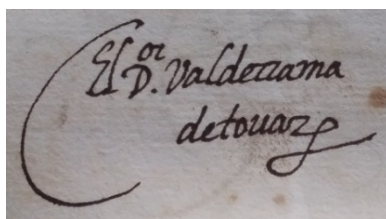 El D.or Valderrama
de touar